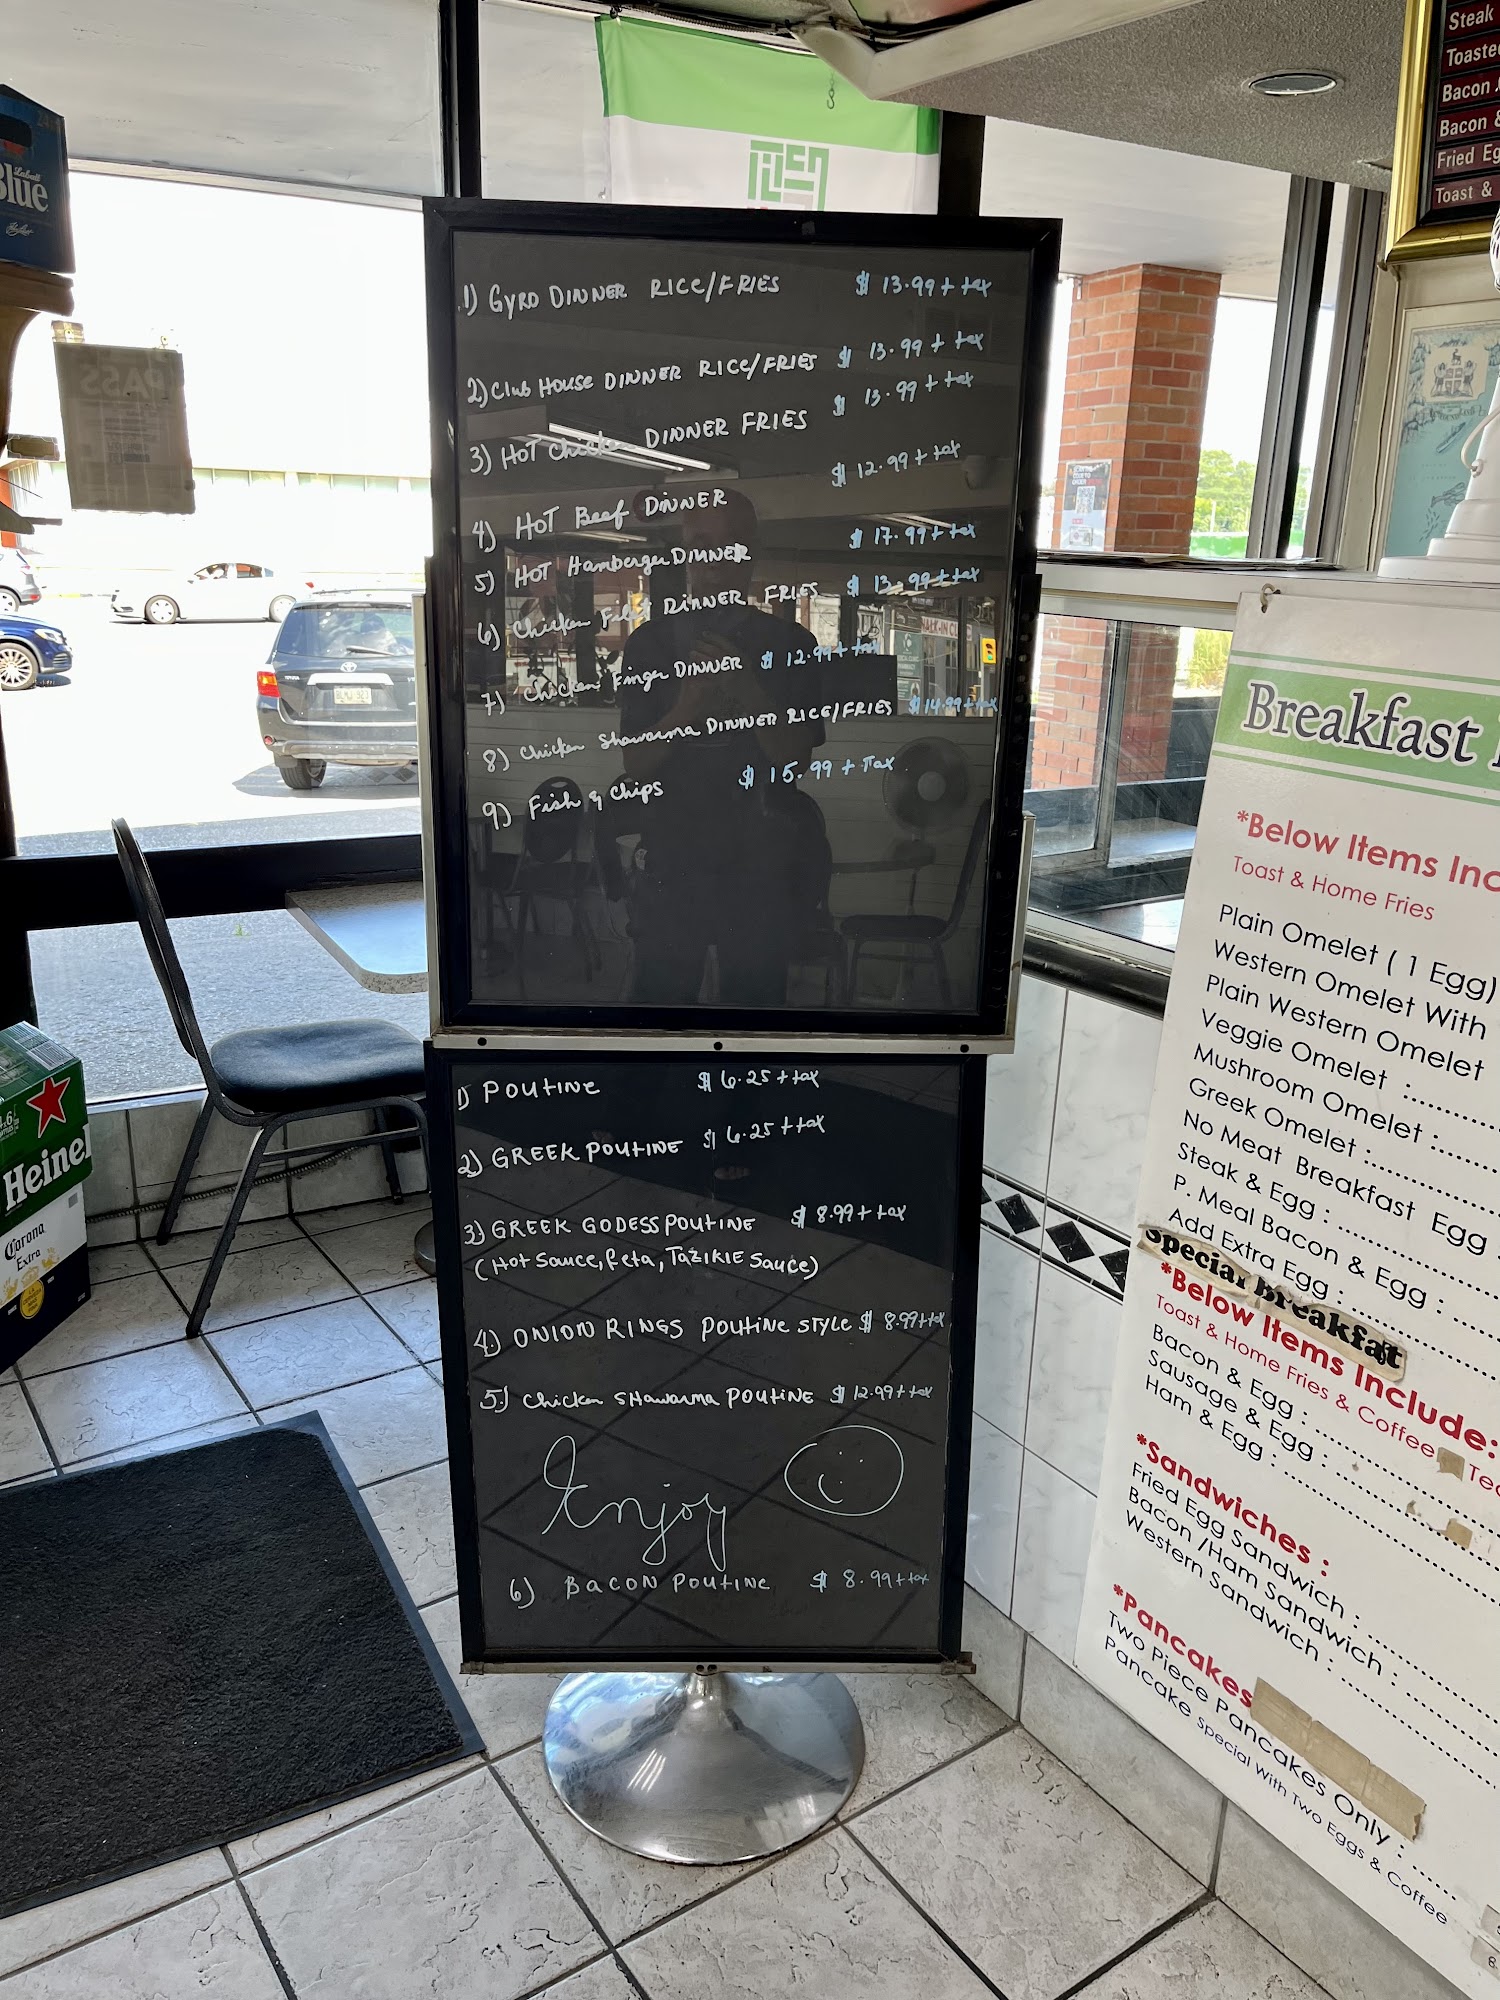 1) GYRO DINNER RICE/FRIES $ 13.99 + tax
2) Club HOUSE DINNER RICE/FRIES $ 13.99 + tax
3) HOT Chicken DINNER FRIES $ 13.99 + tax
4) HOT Beef DINNER $ 12.99 + tax
5) HOT Hamberger DINNER $ 17.99 + tax
6) Chicken Filet DINNER FRIES $ 13.99 + tax
7) Chicken Finger DINNER $ 12.99 + tax
8) Chicken Shawarma DINNER RICE/FRIES $ 14.99 + tax
9) Fish & Chips $ 15.99 + Tax
1) POUTINE $ 6.25 + tax
2) GREEK POUTINE $ 6.25 + tax
3) GREEK GODESS POUTINE $ 8.99 + tax
(Hot Sauce, Feta, TAZIKIE Sauce)
4.) ONION RINGS POUTINE STYLE $ 8.99 + tax
5.) Chicken SHawarma POUTINE $ 12.99 + tax
Enjoy
6) BACON POUTINE $ 8.99 + tax
Labatt
Blue
PASS
TOYOTA
Heine
Corona
Extra
Steak
Toaste
Bacon
Bacon &
Fried Eg
Toast &
Breakfast
*Below Items Inc
Toast & Home Fries
Plain Omelet ( 1 Egg)
Western Omelet With
Plain Western Omelet
Veggie Omelet :
Mushroom Omelet :
Greek Omelet :
No Meat Breakfast Egg
Steak & Egg :
P. Meal Bacon & Egg :
Add Extra Egg :
Special Breakfat
*Below Items Include:
Toast & Home Fries & Coffee Tea
Bacon & Egg :
Sausage & Egg :
Ham & Egg :
*Sandwiches :
Fried Egg Sandwich :
Bacon /Ham Sandwich :
Western Sandwich :
*Pancakes
Two Piece Pancakes Only :
Pancake Special With Two Eggs & Coffee